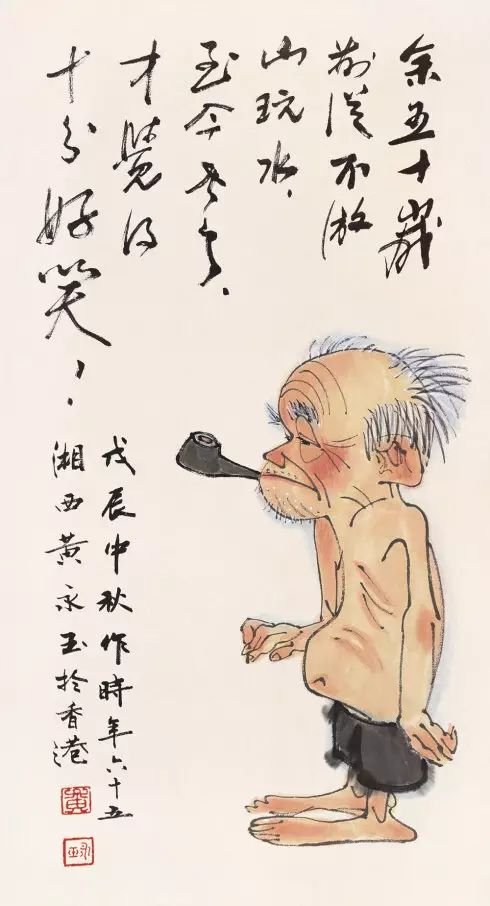 余五十歲
前從不游
山玩水、
至今老
才覺得
十分好笑、、
戊辰中秋作時年六十五
湘西黃永玉於香港
黃
永玉